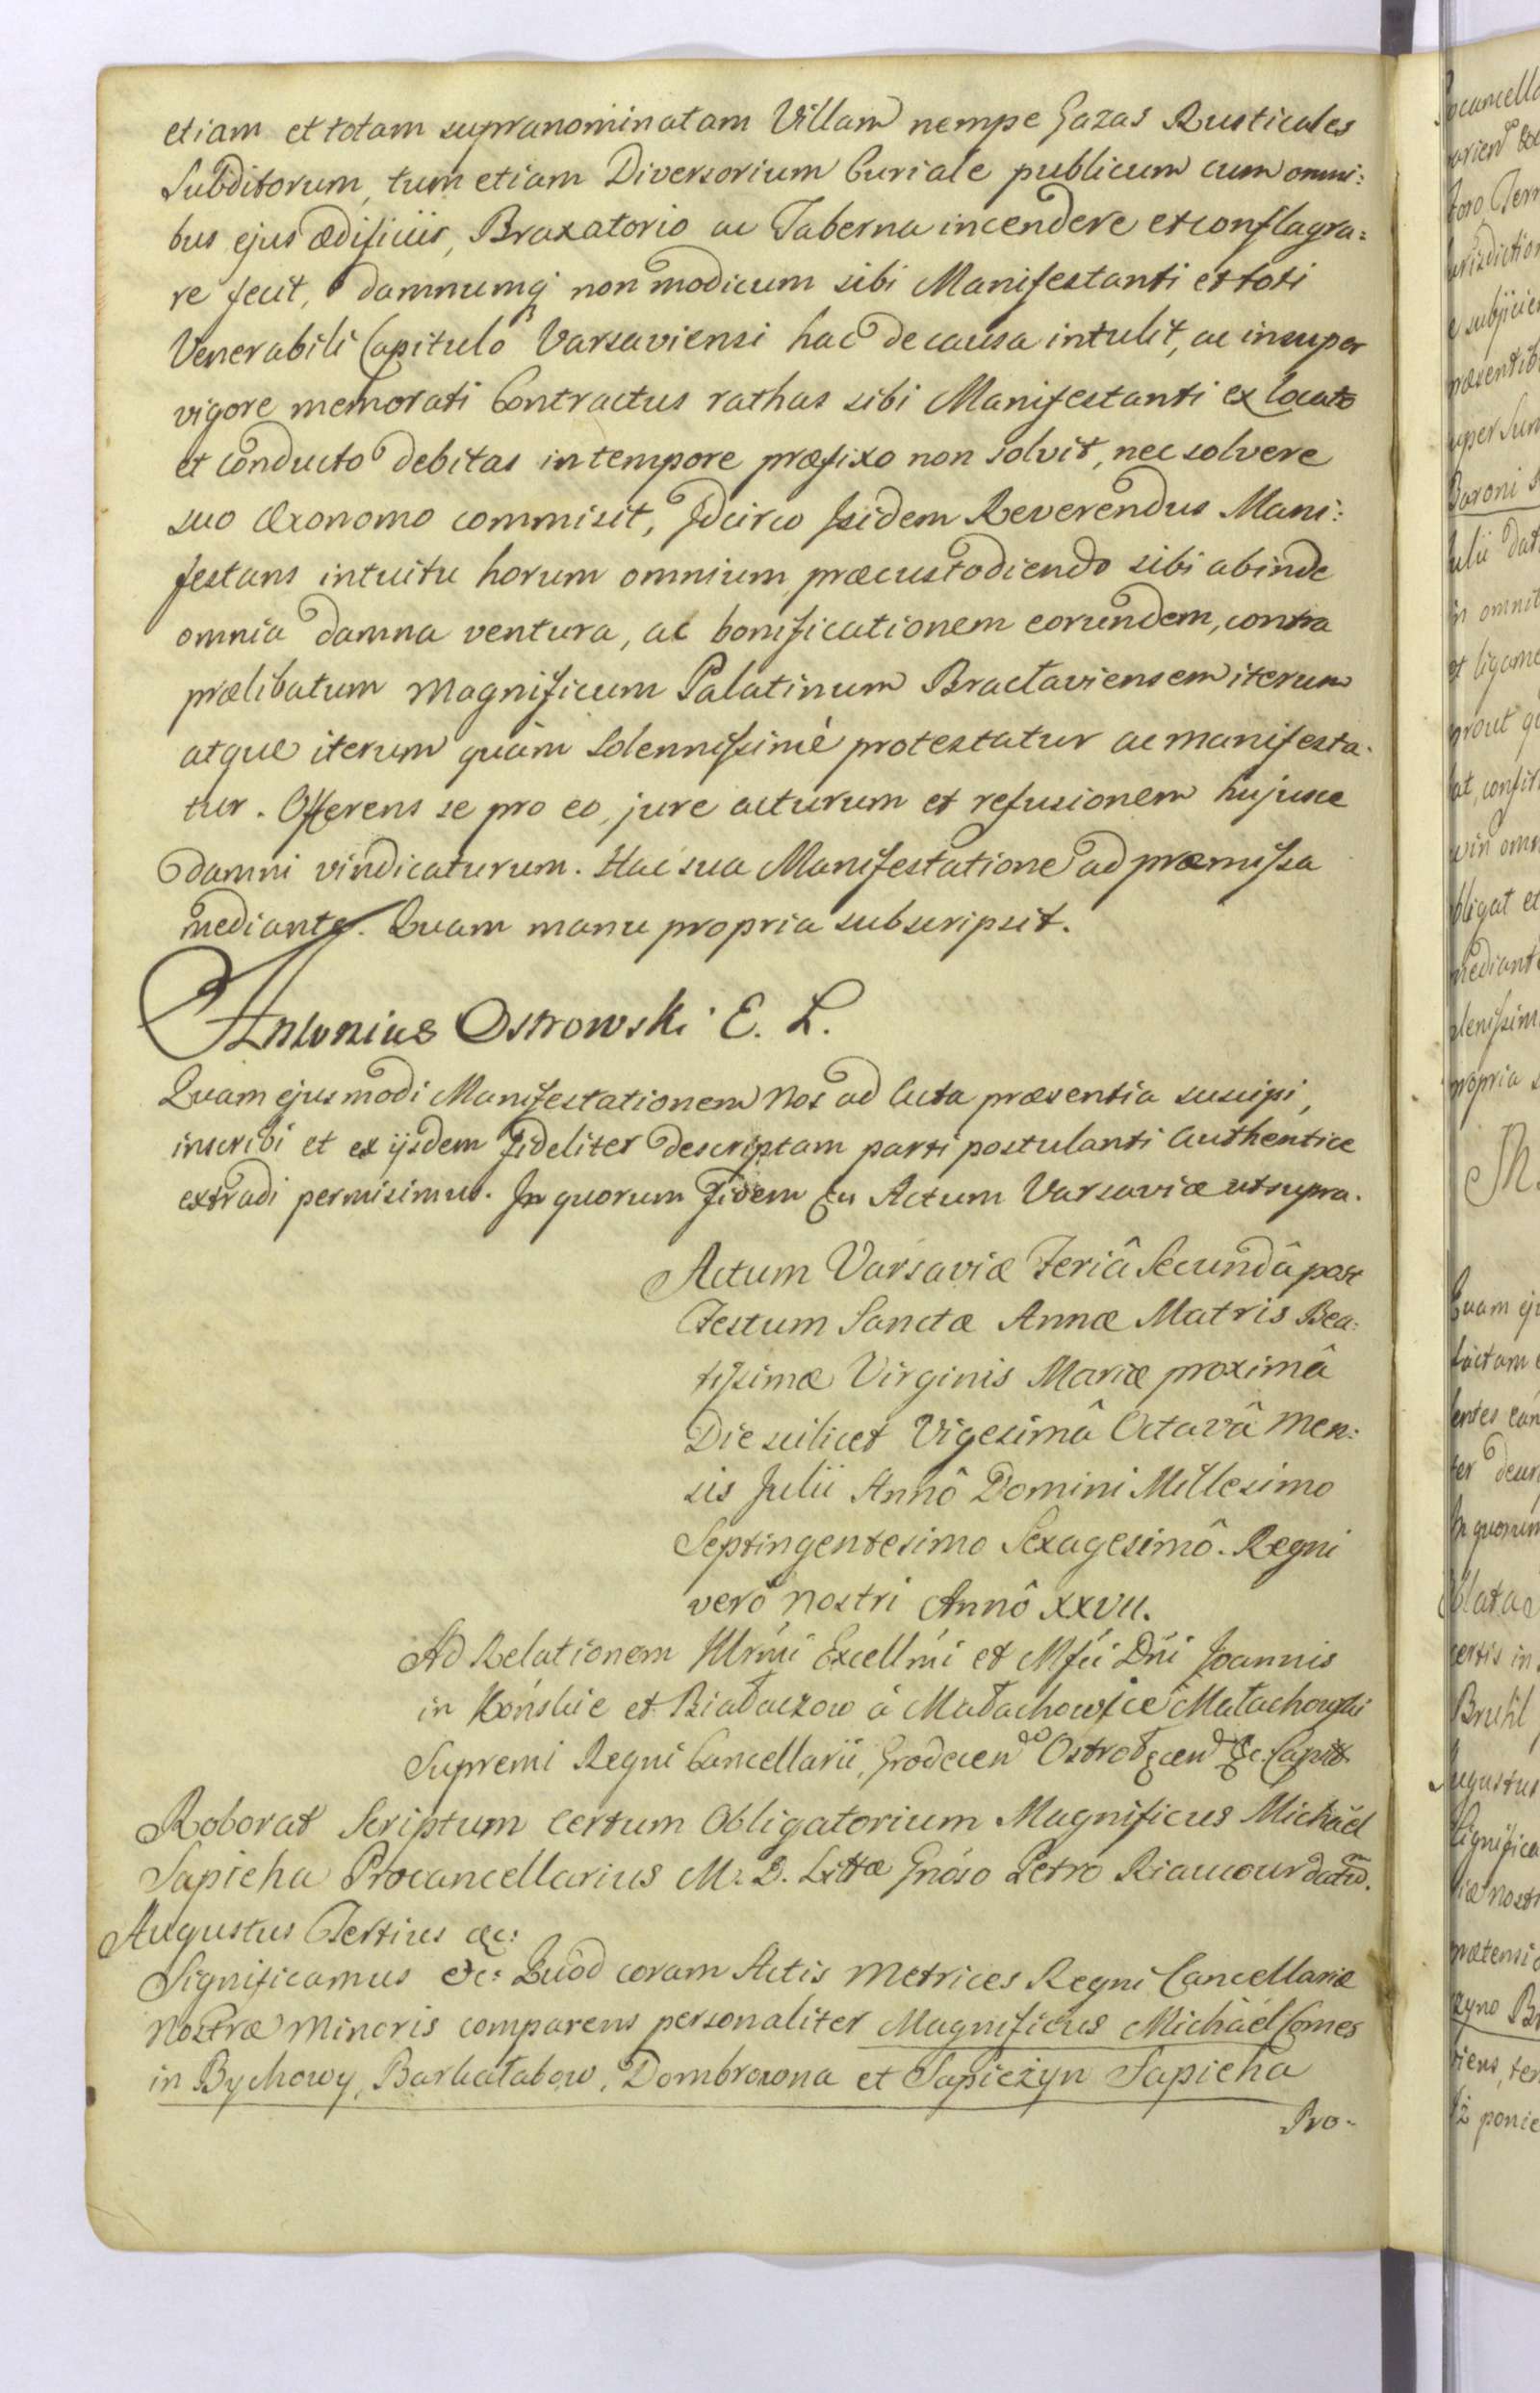 etiam et totam supranominatam Villam nempe Gazas Rusticales
Subditorum, tum etiam Diversorium Curiale publicum cum omni:
bus ejus ædificiis, Braxatorio ac Taberna incendere et conflagra:
re fecit, damnumq́ non modicum sibi Manifestanti et toti
Venerabili Capitulo Varsaviensi hac de causa intulit, ac insuper
vigore memorati Contractus rathas sibi Manifestanti ex locato
et conducto debitas in tempore præfixo non solvit, nec solvere
suo Œconomo commisit, Idcirco Isidem Reverendus Mani:
festans intuitu horum omnium præcustodiendo sibi abinde
omnia damna ventura, ac bonificationem eorundem, contra
prælibatum Magnificum Palatinum Braclaviensem iterum
atque iterum quàm Solennissimè protestatur ac manifesta:
tur. Offerens se pro eo, jure acturum et refusionem hujusce
damni vindicaturum. Hac sua Manifestatione ad præmissa
mediante. Quam manu propria subscripsit.
Antonius Ostrowski E. L.
Quam ejusmodi Manifestationem Nos ad Acta præsentia suscipi,
inscribi et ex ijsdem fideliter descriptam parti postulanti Authentice
extradi permisimus. In quorum Fidem &c Actum Varsaviæ ut supra.
Actum Varsaviæ Feriâ Secundâ post
Festum Sanctæ Annæ Matris Bea:
tissimæ Virginis Mariæ proximâ
Die scilicet Vigesimâ Octavâ Men:
sis Julii Annô Domini Millesimo
Septingentesimo Sexagesimô. Regni
verô Nostri Annô XXVII.
Ad Relationem Illrmi Excellmi et Mfci Dni Joannis
in Końskie et Białaczow à Małachowice Małachowski
Supremi Regni Cancellarii, Grodecen Ostrołęcen &c. Capit
Roborat Scriptum certum Obligatorium Magnificus Michäel
Sapieha Procancellarius M. D. Littæ Gnoso Petro Riaucour datum.
Augustus Tertius &c:
Significamus &c: Quòd coram Actis Metrices Regni Cancellariæ
Nostræ Minoris comparens personaliter Magnificus Michäel Comes
in Bychowy, Barkałabow, Dombrowna et Sapieżyn Sapieha
Pro-